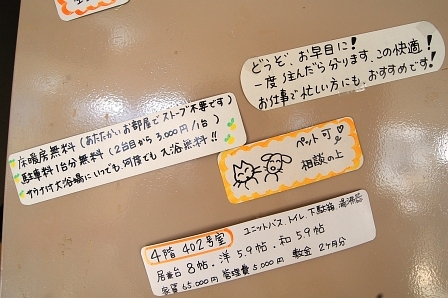 どうぞ、お早目に!
一度住んだら分ります、この快適!
お仕事で忙しい方にも、おすすめです!
床暖房無料(あたたかいお部屋でストーブ不要です)
駐車料1台分無料(2台目から3,000円/1台)
サウナ付大浴場にいつでも、何度でも入浴無料!!
ペット可♡
相談の上
4階 402号室
ユニットバス、トイレ、下駄箱 湯沸器
居兼台8帖、洋5.9帖、和5.9帖
家賃65,000円 管理費5,000円 敷金2ヶ月分